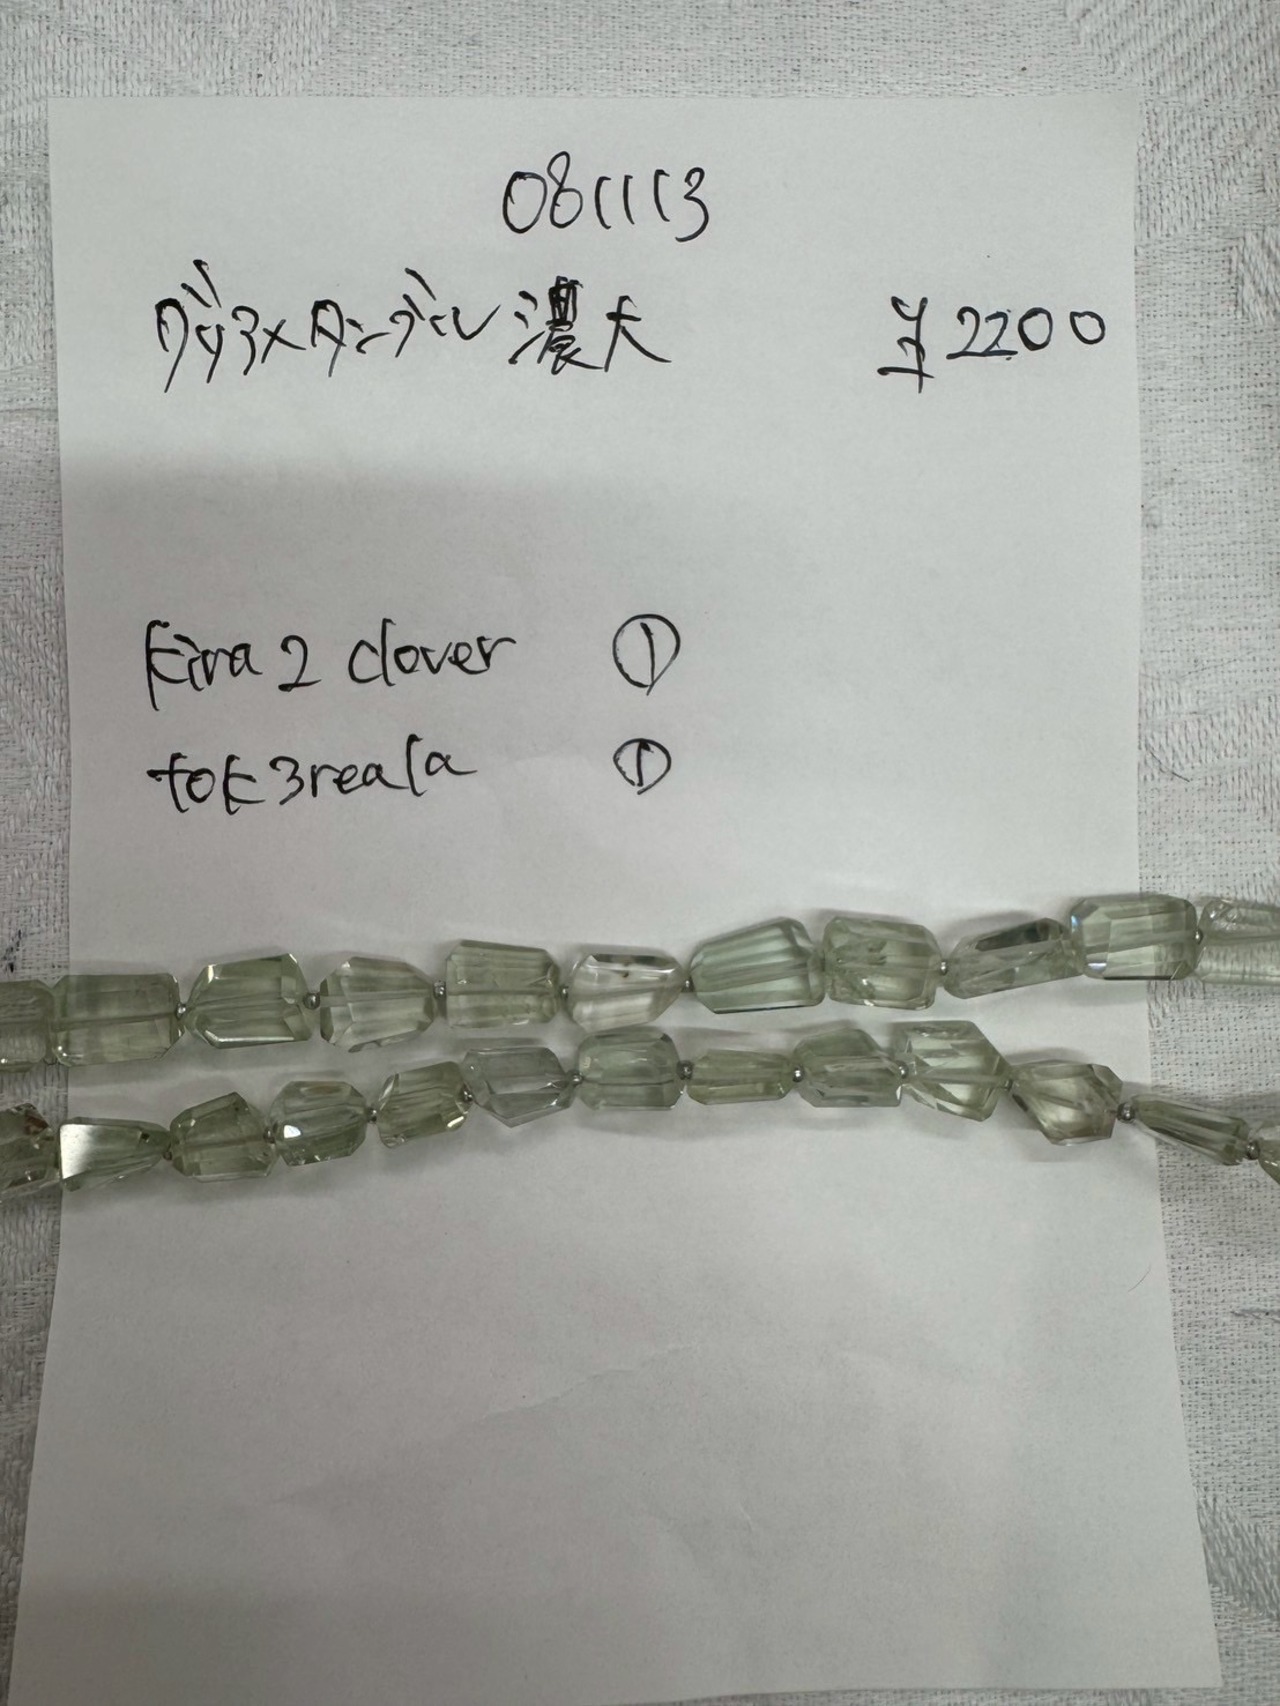 081113
グリアメタンブル 濃大 ¥2200
kira2 clover ①
tok3reala ①